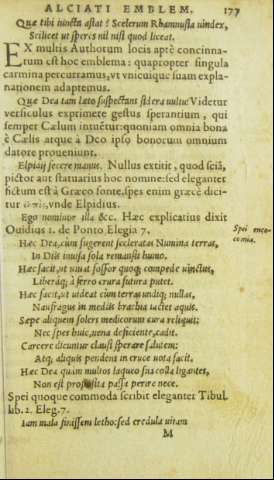 ALCIATI EMBLEM. 177
Quæ tibi iuncta astat? Scelerum Rhamnusia uindex,
Scilicet ut speris nil nisi quod liceat.
EX multis Authorum locis aptè concinna-
tum est hoc emblema: quapropter singula
carmina percurramus, vt vnicuique suam expla-
nationem adaptemus.
Quæ Dea tam læto suspectans sidera uultu? Videtur
versiculus exprimere gestus sperantium, qui
semper Cælum intuẽtur: quoniam omnia bona
è Cælis atque à Deo ipso bonorum omnium
datore proueniunt.
Elpidij fecere manus. Nullus extitit, quod sciã,
pictor aut statuarius hoc nomine: sed eleganter
fictum est à Græco fonte, spes enim græcè dici-
tur vnde Elpidius.
Ego nominor illa &c. Hæc explicatius dixit
Ouidius 1. de Ponto Elegia 7.
Spei enco-
comia.
Hæc Dea, cùm fugerent sceleratas Numina terras,
In Diis inuisa sola remansit humo.
Hæc facit, ut uiuat fossor quoq; compede uinctus,
Liberaq; à ferro crura futura putet.
Hæc facit, ut uideat cùm terras undiq; nullas,
Naufragus in mediis brachia iactet aquis.
Sæpe aliquem solers medicorum cura reliquit;
Nec spes huic, uena deficiente, cadit.
Carcere dicuntur clausi sperare salutem;
Atq; aliquis pendens in cruce uota facit.
Hæc Dea quàm multos laqueo sua colla ligantes,
Non est proposita passa perire nece.
Spei quoque commoda scribit eleganter Tibul.
lib. 2. Eleg. 7.
Iam mala finissem letho: sed credula uitam
M